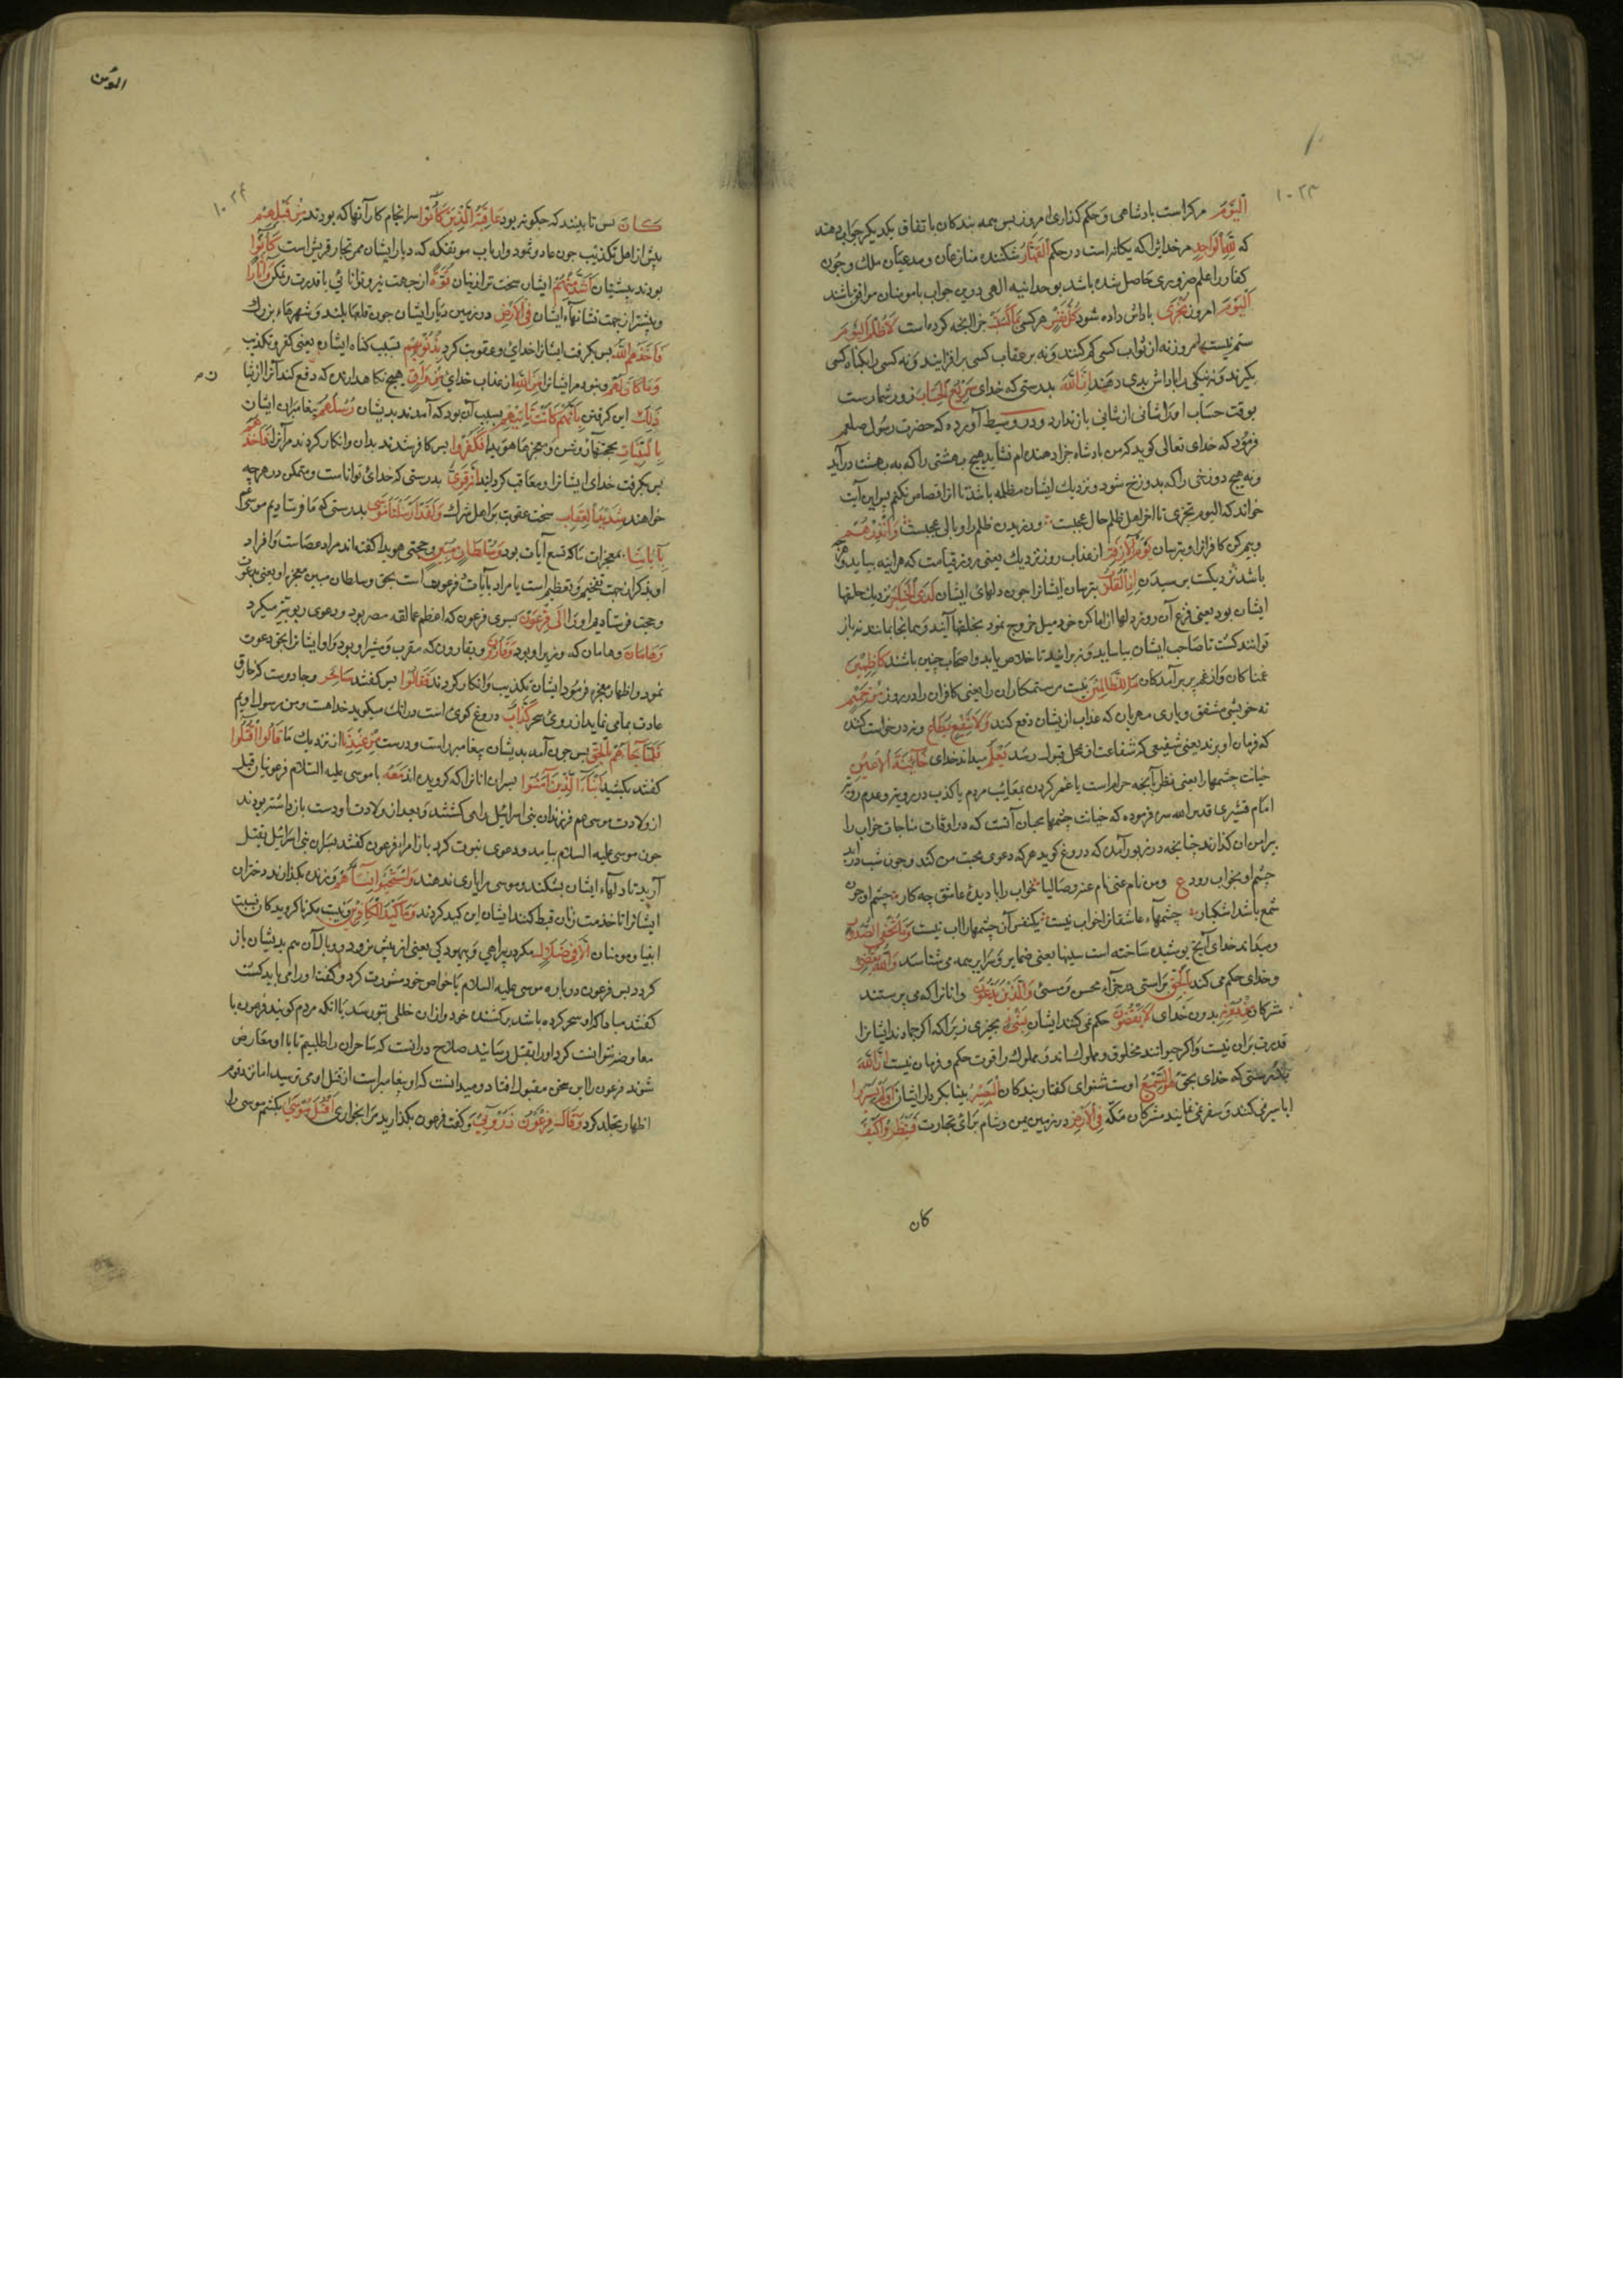 ۱۰۲۳
الیوم مرکراست بادشاهی و حکم گذاری امروز بس همه بندکان باتفاق یکدیکر جواب دهند
که لله الواحد مر خدایراکه یکانه است در حکم القهار شکننده منازعان و مدعیان ملک و چون
کفار را علم ضروری حاصل شده باشد بوحدانیه الهی درین جواب بامومنان موافق باشند
الیوم امروز تجزی باداش داده شود کل نفس هر کسی بما کسبت جزا انچه کرده است لا ظلم الیوم
ستم نیست امروز نه از ثواب کسی کم کنند و نه بر عقاب کسی بر افزایند و نه کسی را بکناه کسی
بکیرند و نه نیکی را باداش بدی دهند ان الله بدرستی که خدای سریع الحساب زود شمارست
بوقت حساب او را شانی از شانی باز ندارد و در وسیط آورده که حضرت رسول صلعم
فرمود که خدای تعالی کوید که من بادشاه جزا دهنده ام نشاید هیچ بهشتی را که به بهشت درآید
و نه هیچ دوزخی را که بدوزخ شود و نزدیک ایشان مظلمه باشد تا از قصاص نکنم پس این آیت
خواند که الیوم تجزی تا اخر اهل ظلم حال عجبست ورزیدن ظلم را وبالی عجبست وانذرهم
و بیم کن کافرانرا و بترسان یوم الازفة از عذاب روز نزدیک یعنی روز قیامت که هر اینه بیاید و هر چه
باشد نزدیکست برسیدن اذ القلوب بترسان ایشانرا چون دلهای ایشان لدی الحناجر نزدیک حلقها
ایشان بود یعنی فزع آن روز دلها از اماکن خود میل خروج نمود بحلقها آیند و همانجا بمانند نه باز
توانند کشت تا صاحب ایشان بیاساید و نه برایند تا خلاص یابد و اصحاب چنین باشند کاظمین
غمناکان و از غم پر برآمدکان ما للظالمین نیست مر ستمکاران را یعنی کافران را در روز من حمیم
نه خویشی مشفق و یاری مهربان که عذاب ازیشان دفع کند ولا شفیع یطاع و نه درخواست کننده
که فرمان او برند یعنی شفیعی که شفاعت او محل قبول رسد یعلم میداند خدای خائنة الاعین
خیانت چشمها را یعنی نظر بآنچه حرام است یا غمز کردن بمعایب مردم یا کذب در رویت و عدم رویت
امام قشیری قدس الله سره فرموده که خیانت چشمها محبان آنست که در اوقات مناجات خواب را
پیرامن ان گذارند چنانچه در زبور آمده که دروغ کوید هر که دعوی محبت من کند و چون شب درآید
چشم او بخواب رود ع ومن نام عنی نام عنه وصالیا خواب را با دیدهٔ عاشق چه کار چشم او چون
شمع باشد اشکبار چشمهاء عاشقانرا خواب نیست یکنفس آن چشمها را اب نیست وما تخفی الصدور
و میداند خدای آنچ پوشیده ساخته است سینها یعنی ضمایر و سرایر همه می شناسد والله یقضی
و خدای حکم می کند بالحق براستی در جزاء محسن و مسئ والذین یدعون و انانرا که می پرستند
مشرکان من دونه بدون خدای لا یقضون حکم نمی کنند ایشان بشئ بچیزی زیرا که اکر جمادند ایشانرا
قدرت بران نیست و اکر حیوانند مخلوق و مملوک اند و مملوک را قوت حکم و فرمان نیست ان الله
بدرستی که خدای بحق هو السمیع اوست شنوای کفتار بندکان البصیر بینا بکردار ایشان اولم یسیروا
ایا سیر نمی کنند و سفر نمی نمایند مشرکان مکه فی الارض در زمین یمن و شام برای تجارت فینظروا کیف
کان
المؤمن
۱۰۲۴
کان بس تا ببینند که چکونه بود عاقبة الذین کانوا سرانجام کار آنها که بودند من قبلهم
پیش از اهل تکذیب چون عاد و ثمود و ارباب موتفکه که دیار ایشان ممر تجار قریش است کانوا
بودند پیشینیان هم اشد منهم ایشان سخت تر ازینان قوة از جهت نیرو و توانائی با قدرت و تمکن وآثارا
و بیشتر از جهت نشانهاء ایشان فی الارض در زمین دیار ایشان چون قلعها بلند و شهرهاء بزرک
فاخذهم الله بس بکرفت ایشانرا خدای و عقوبت کرد بذنوبهم بسبب کناه ایشان یعنی کفر و تکذیب
وما کان لهم و نبود مر ایشانرا من الله از عذاب خدای من واق هیچ نکاهدارنده که دفع کند آنرا ازینها
ذلک این کرفتن بانهم کانت تاتیهم بسبب آن بود که آمدند بدیشان رسلهم پیغامبران ایشان
بالبینات بحجتهای روشن و معجزهاء هویدا فکفروا بس کافر شدند بدان و انکار کردند مر آنرا فاخذهم
بس بکرفت خدای ایشانرا و معاقب کردانید انه قوی بدرستی که خدای تواناست و متمکن در هر چه
خواهد شدید العقاب سخت عقوبت بر اهل شرک ولقد ارسلنا موسی بدرستی که ما فرستادیم موسی را
بآیاتنا بمعجزات ما که تسع آیات بود وسلطان مبین و حجتی هویدا کفته اند مراد عصاست و افراد
او بذکر از جهت تفخیم و تعظیم است یا مراد بآیات دعوتهاست بحق و سلطان مبین معجزه او یعنی بدعوت
و حجت فرستادیم او را الی فرعون بسوی فرعون که اعظم عمالقه مصر بود و دعوی ربوبیت میکرد
وهامان و هامان که وزیر او بود وقارون و بقارون که مقرب و مشیر او بود و او ایشانرا بحق دعوت
نمود و اظهار معجزه فرمود ایشان تکذیب و انکار کردند فقالوا بس کفتند ساحر جادوست که خارق
عادت بما می نماید از روی سحر کذاب دروغ کوی است درانک میکوید خدا هست و من رسول اویم
فلما جاءهم بالحق بس چون آمد بدیشان پیغامبر راست و درست من عندنا از نزدیک ما قالوا اقتلوا
کفتند بکشید ابناء الذین آمنوا پسران انانرا که کرویده اند معه با موسی علیه السلام فرعونیان قبل
از ولادت موسی هم فرزندان بنی اسرائیل را می کشتند و بعد از ولادت او دست باز داشته بودند
چون موسی علیه السلام بیامد و دعوی نبوت کرد باز امراء فرعون کفتند پسران بنی اسرائیل بقتل
آرید تا دلهاء ایشان بشکند و موسی را یاری ندهند واستحیوا نساءهم و زنده بکذارند دختران
ایشانرا تا خدمت زنان قبط کنند ایشان این کید کردند وما کید الکافرین و نیست مکر ناکرویدکان نسبت
انبیا و مومنان الا فی ضلال مکر در پیراهی و بیهودکی یعنی از پیش نرود و وبال آن هم بدیشان باز
کردد بس فرعون درباره موسی علیه السلام با خواص خود مشورت کرد و کفت او را می باید کشت
کفتند مبادا که او سحر کرده باشد بر کشنده خود و ازان خللی بتو رسد با انکه مردم کویند فرعون با
معارضه نتوانست کرد او را بقتل رسانید صلاح درانست که ساحران را طلبیم تا با او معارض
شوند فرعون را این سخن مقبول افتاد و میدانست که او پیغامبر است از قتل او می ترسید اما نزد قوم
اظهار تجلد کرد وقال فرعون ذرونی و کفت فرعون بکذارید مرا بخواری اقتل موسی تا بکشم موسی را